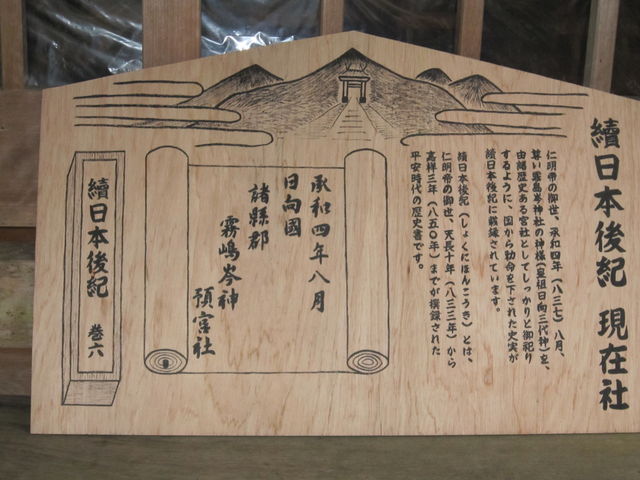 續日本後紀 現在社
仁明帝の御世、承和四年(八三七)八月、
尊い霧島岑神社の神様(皇祖日向三代神)を、
由緒歴史ある宮社としてしっかりと御祀り
するように、国から勅命を下された史実が
續日本後紀に載録されています。
續日本後紀(しょくにほんこうき)とは、
仁明帝の御世、天長十年(八三三年)から
嘉祥三年(八五〇年)までが撰録された
平安時代の歴史書です。
承和四年八月
日向國
諸縣郡
霧嶋岑神
預官社
續日本後紀 巻六